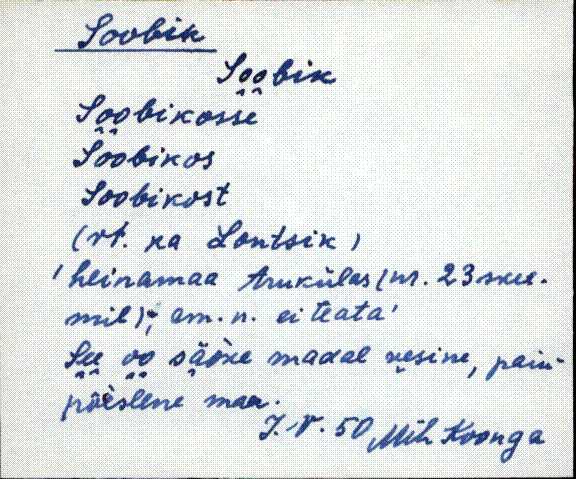 Soobik
Soobik
Soobikosse
Soobikos
Soobikost
(vt. ka Lontsik)
'heinamaa Arukülas (nr. 23 skee-
mil); om. n. ei teata'
See oo sääne madal vesine, paiu-
põeslene maa.
J. V. 50 Mih Koonga